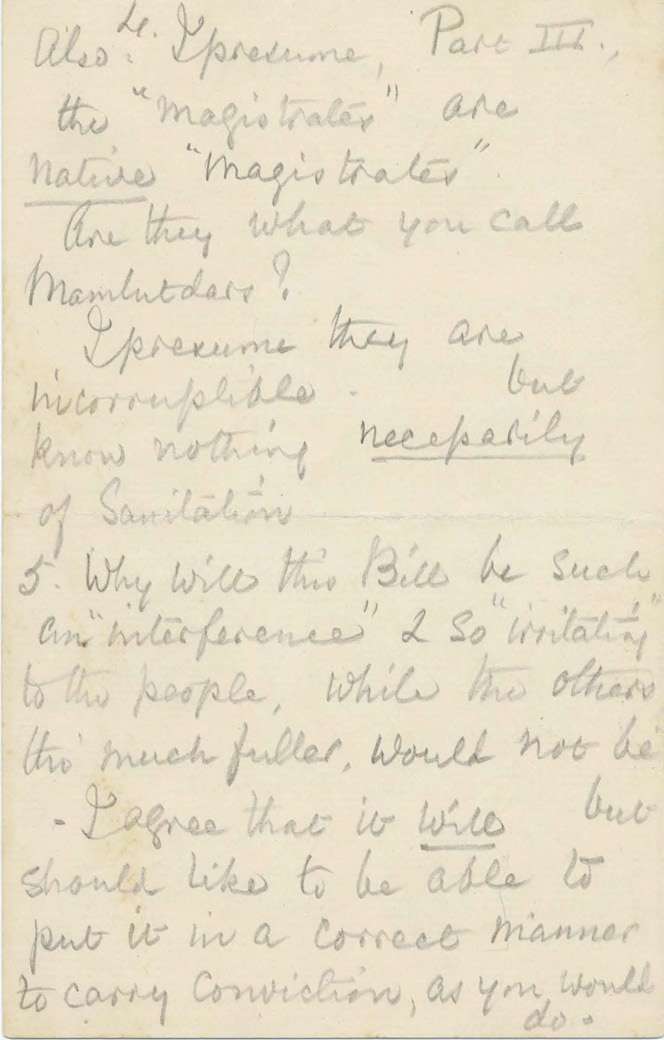 Also: 4. I presume, Part III.,
the "Magistrates" are
native "Magistrates".
Are they what you call
Mamlutdars?
I presume they are
incorruptible. but
know nothing necessarily
of Sanitation
5. Why will this Bill be such
an "interference" & so "irritating"
to the people, while the others
tho' much fuller, would not be
- I agree that it will but
should like to be able to
put it in a correct manner
to carry conviction, as you would
do.